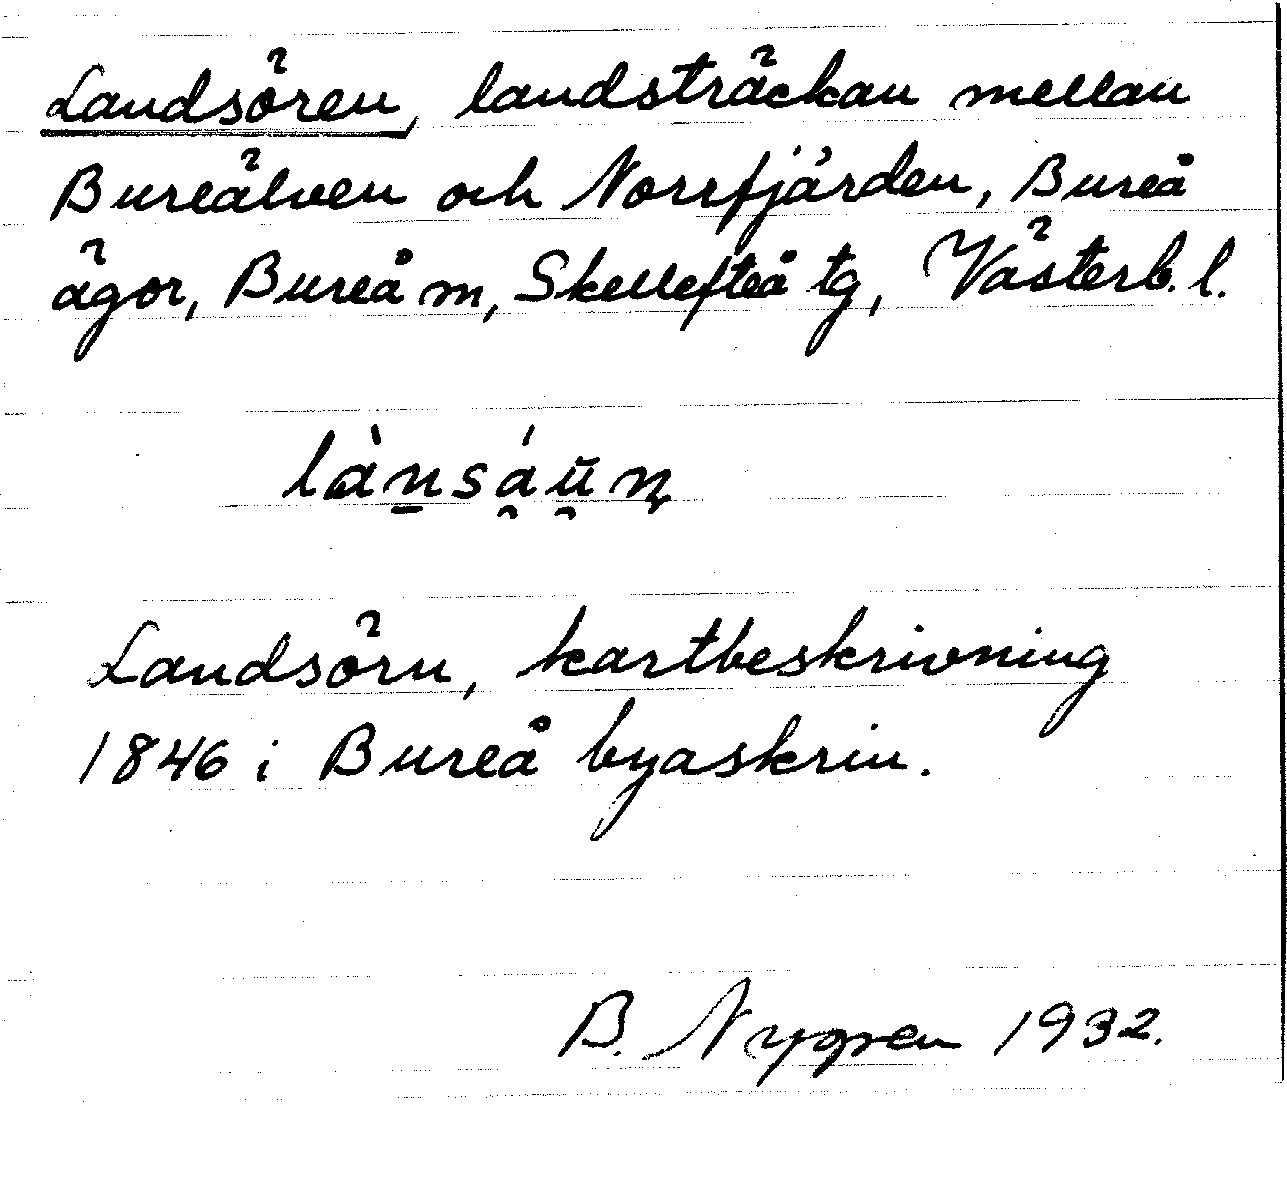 Landsören, landsträckan mellan
Bureälven och Norrfjärden, Bureå
ägor, Bureå m, Skellefteå tg, Västerb. l.
là̠nsá̯ŭ̯ṇ
Landsörn, kartbeskrivning
1846 i Bureå byaskrin.
B. Nygren 1932.